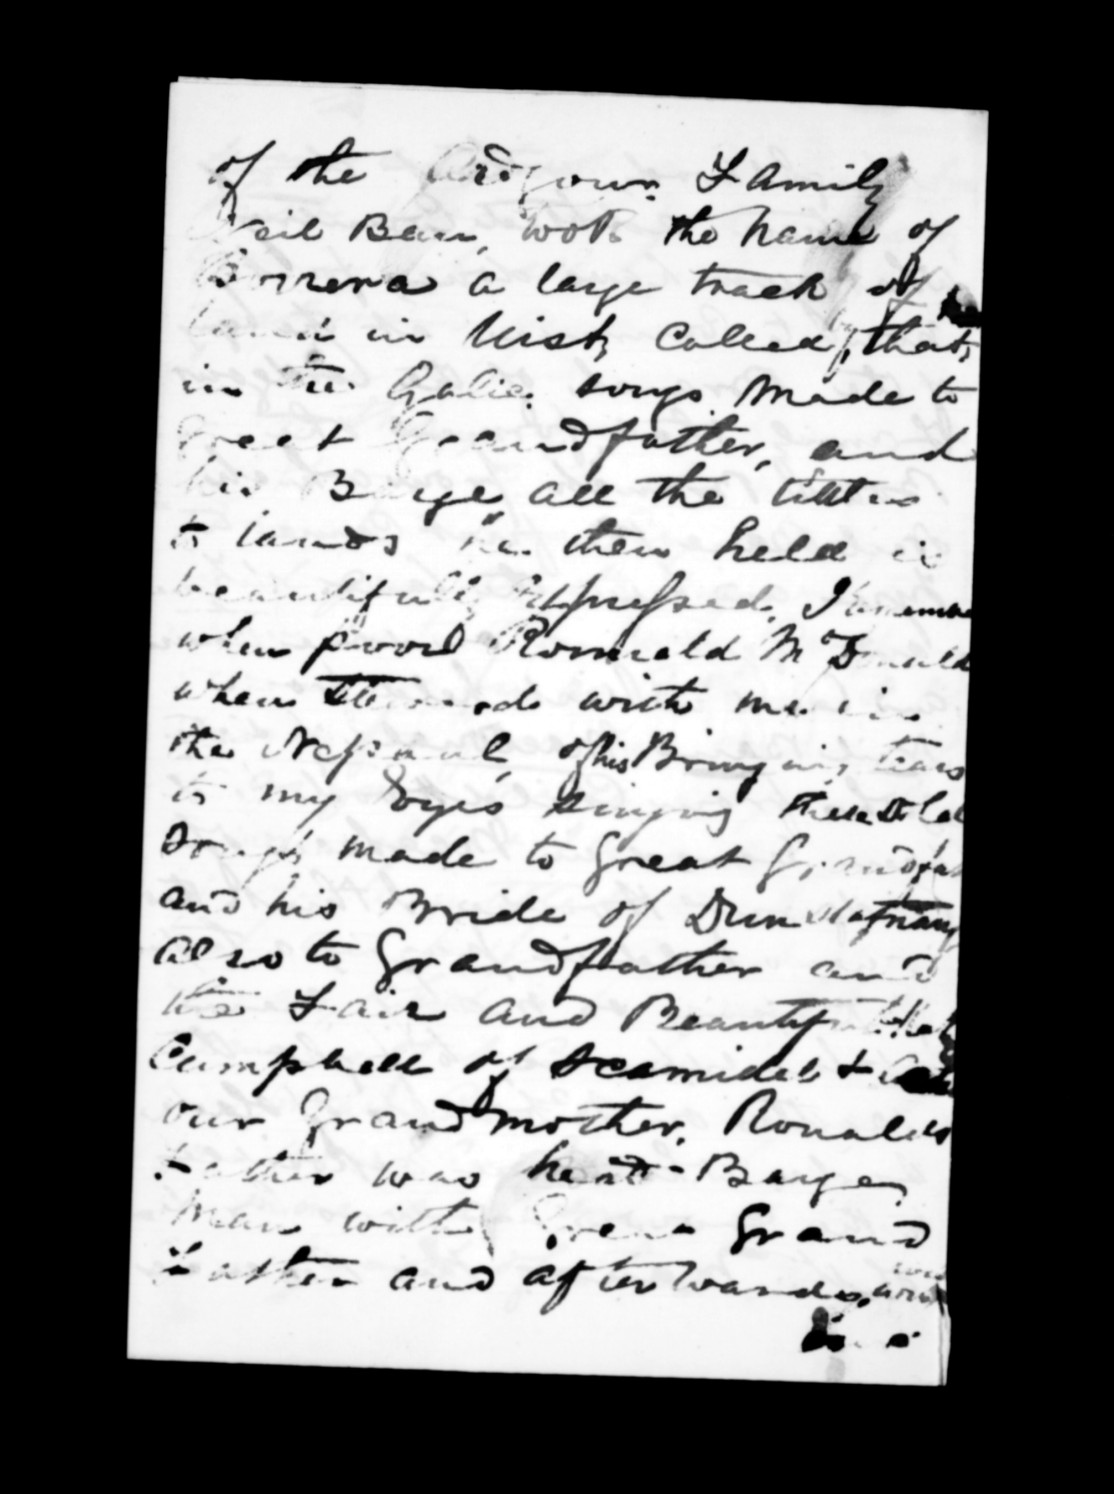 of the Ardgour Family
Neil Ban, took the name of
Borrera a large track of
land in Uist, called, that,
in the Galic songs made to
Great Grandfather, and
his Barge, all the titles
to lands he then held is
beautifully Expressed, I remember
when poord Ronald McDonald
when with me in
the Nepaul, of his Bringing tears
to my Eyes singing these
songs made to Great Grandfat
and his Bride of Dunstaffnay
also to Grandfather and
the Fair and Beautiful
Campbell of Scamidel &
our Grandmother. Ronalds
Father was Barge
Man with Great Grand
Father and afterwards,